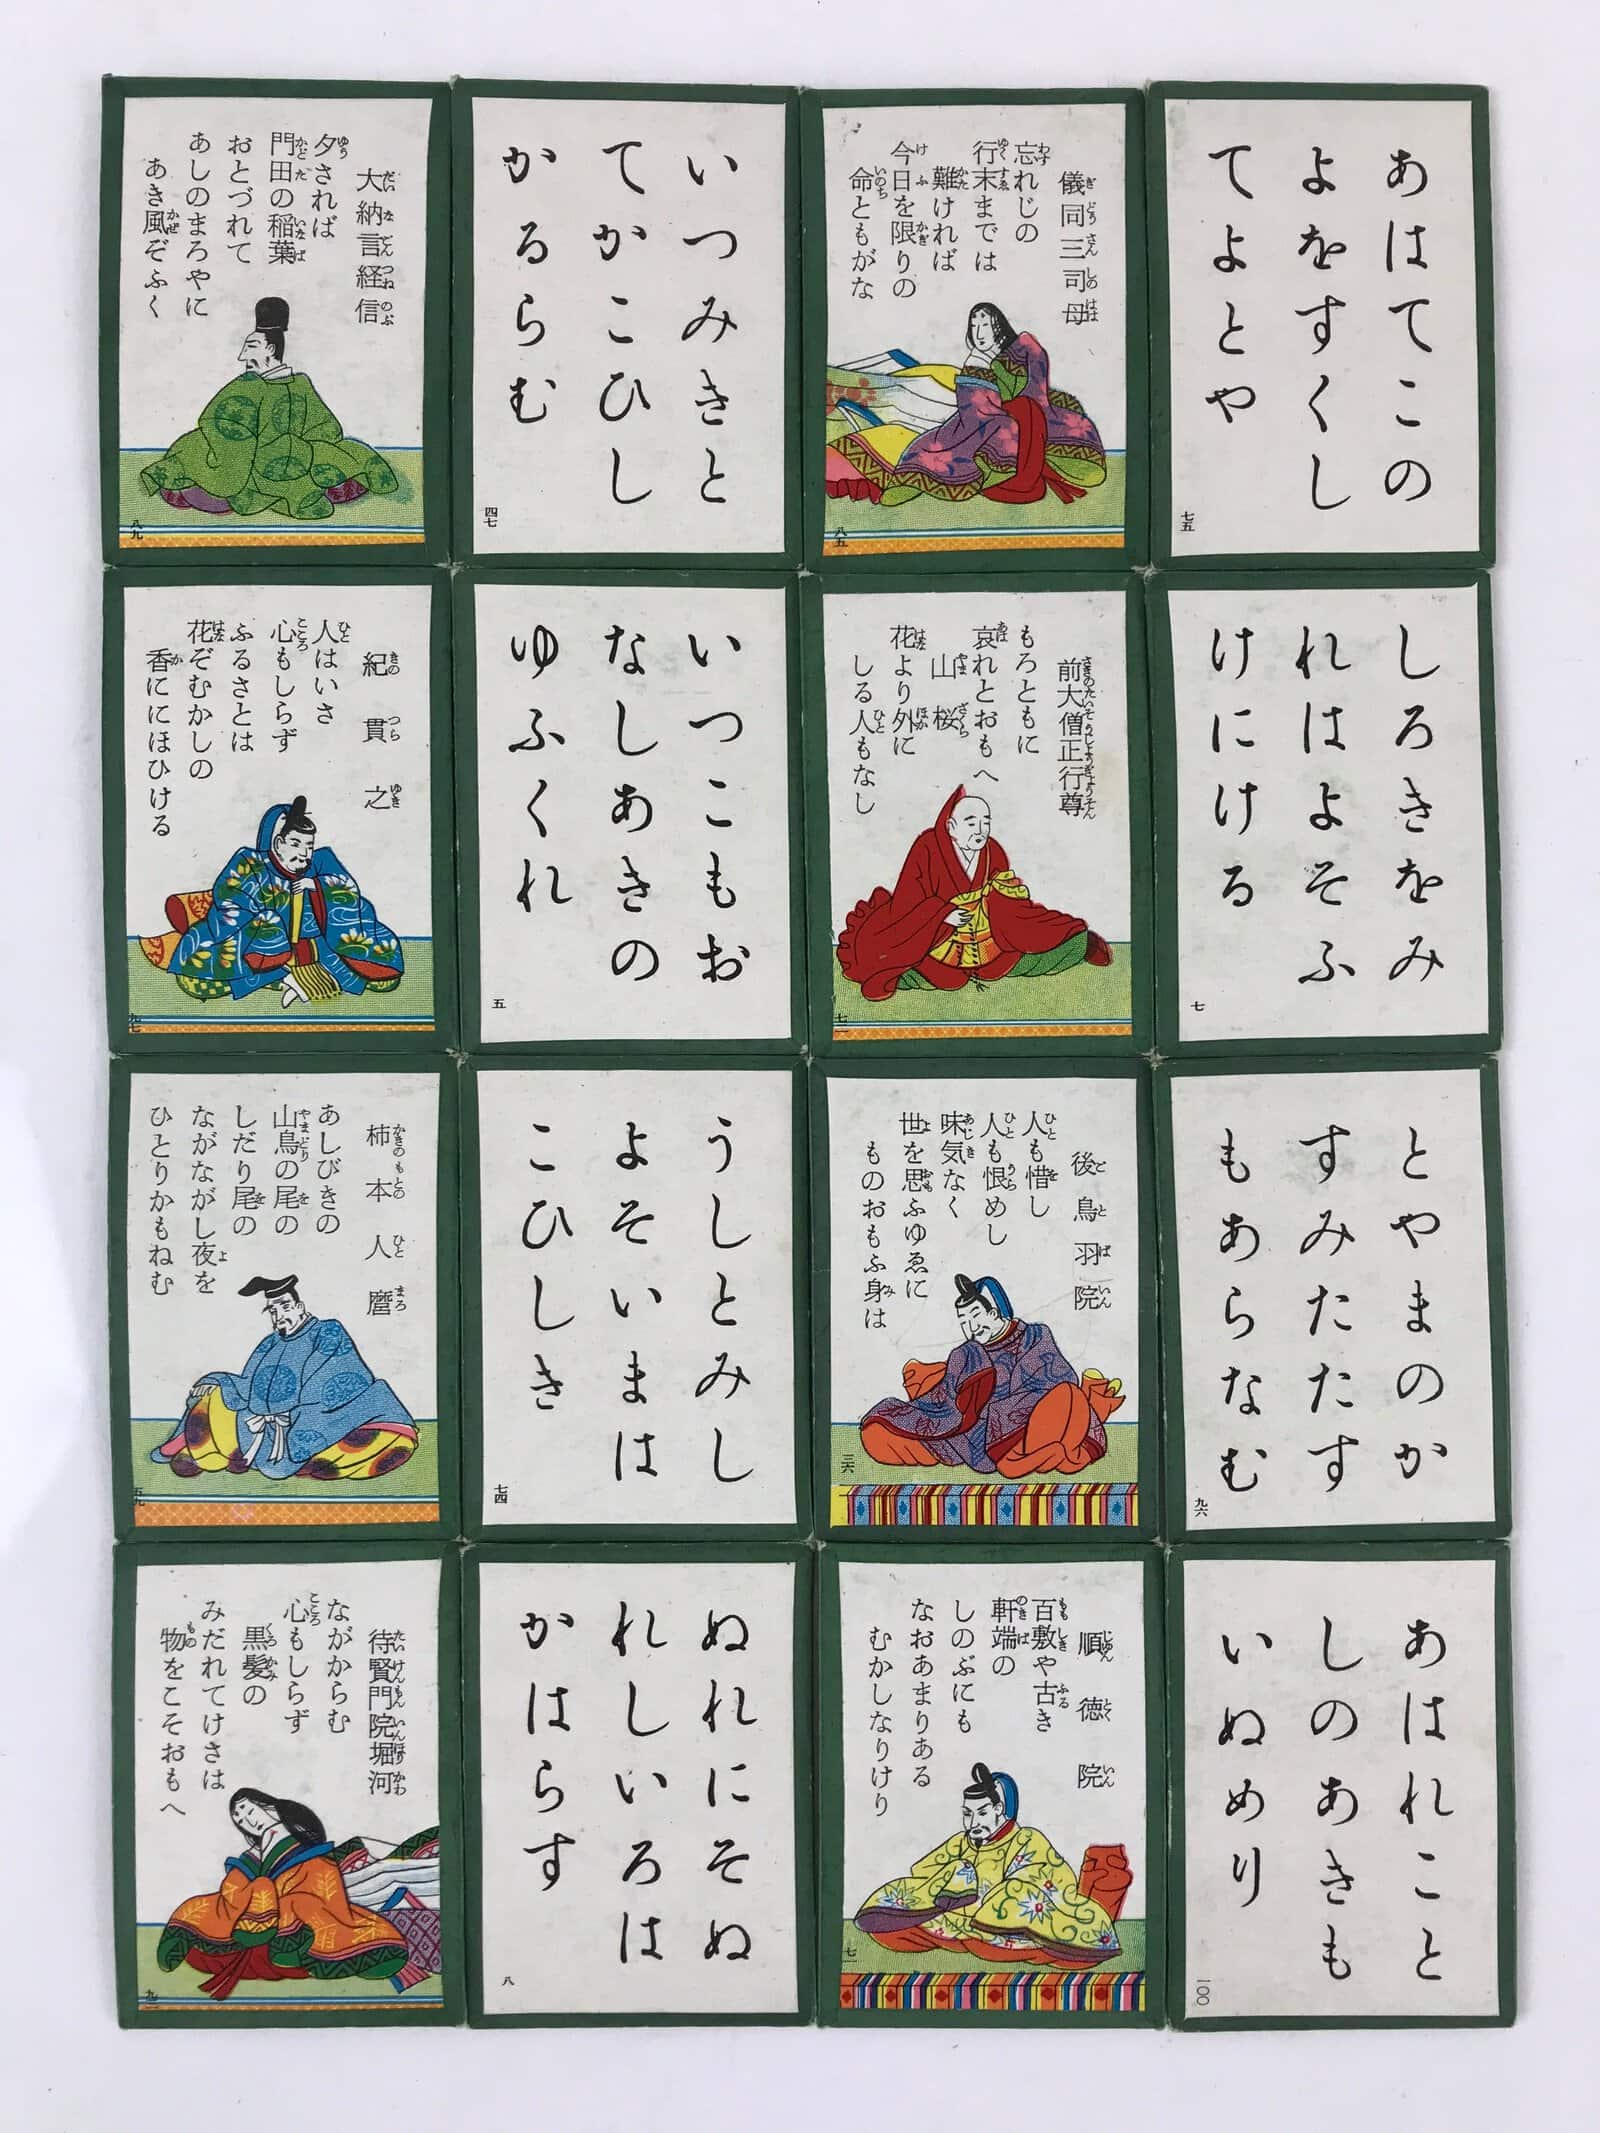 大納言経信
夕されば
門田の稲葉
おとづれて
あしのまろやに
あき風ぞふく
八九
いつみきと
てかこひし
かるらむ
四七
儀同三司母
忘れじの
行末までは
難ければ
今日を限りの
命ともがな
八五
あはてこの
よをすくし
てよとや
七五
紀貫之
人はいさ
心もしらず
ふるさとは
花ぞむかしの
香ににほひける
九七
いつこもお
なしあきの
ゆふくれ
五
前大僧正行尊
もろともに
哀れとおもへ
山桜
花より外に
しる人もなし
しろきをみ
れはよそふ
けにける
七
柿本人麿
あしびきの
山鳥の尾の
しだり尾の
ながながし夜を
ひとりかもねむ
五九
うしとみし
よそいまは
こひしき
七四
後鳥羽院
人も惜し
人も恨めし
味気なく
世を思ふゆゑに
ものおもふ身は
三六
とやまのか
すみたたす
もあらなむ
九六
待賢門院堀河
ながからむ
心もしらず
黒髪の
みだれてけさは
物をこそおもへ
ぬれにそぬ
れしいろは
かはらす
八
順徳院
百敷や古き
軒端の
しのぶにも
なおあまりある
むかしなりけり
あはれこと
しのあきも
いぬめり
一〇〇